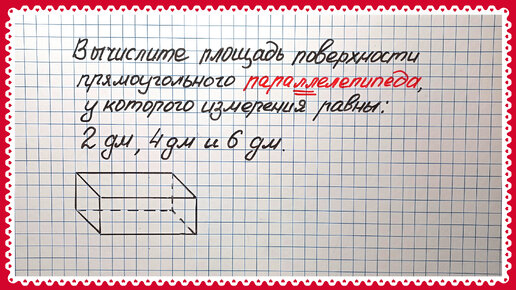 Вычислите площадь поверхности
прямоугольного параллелепипеда,
у которого измерения равны:
2 дм, 4 дм и 6 дм.